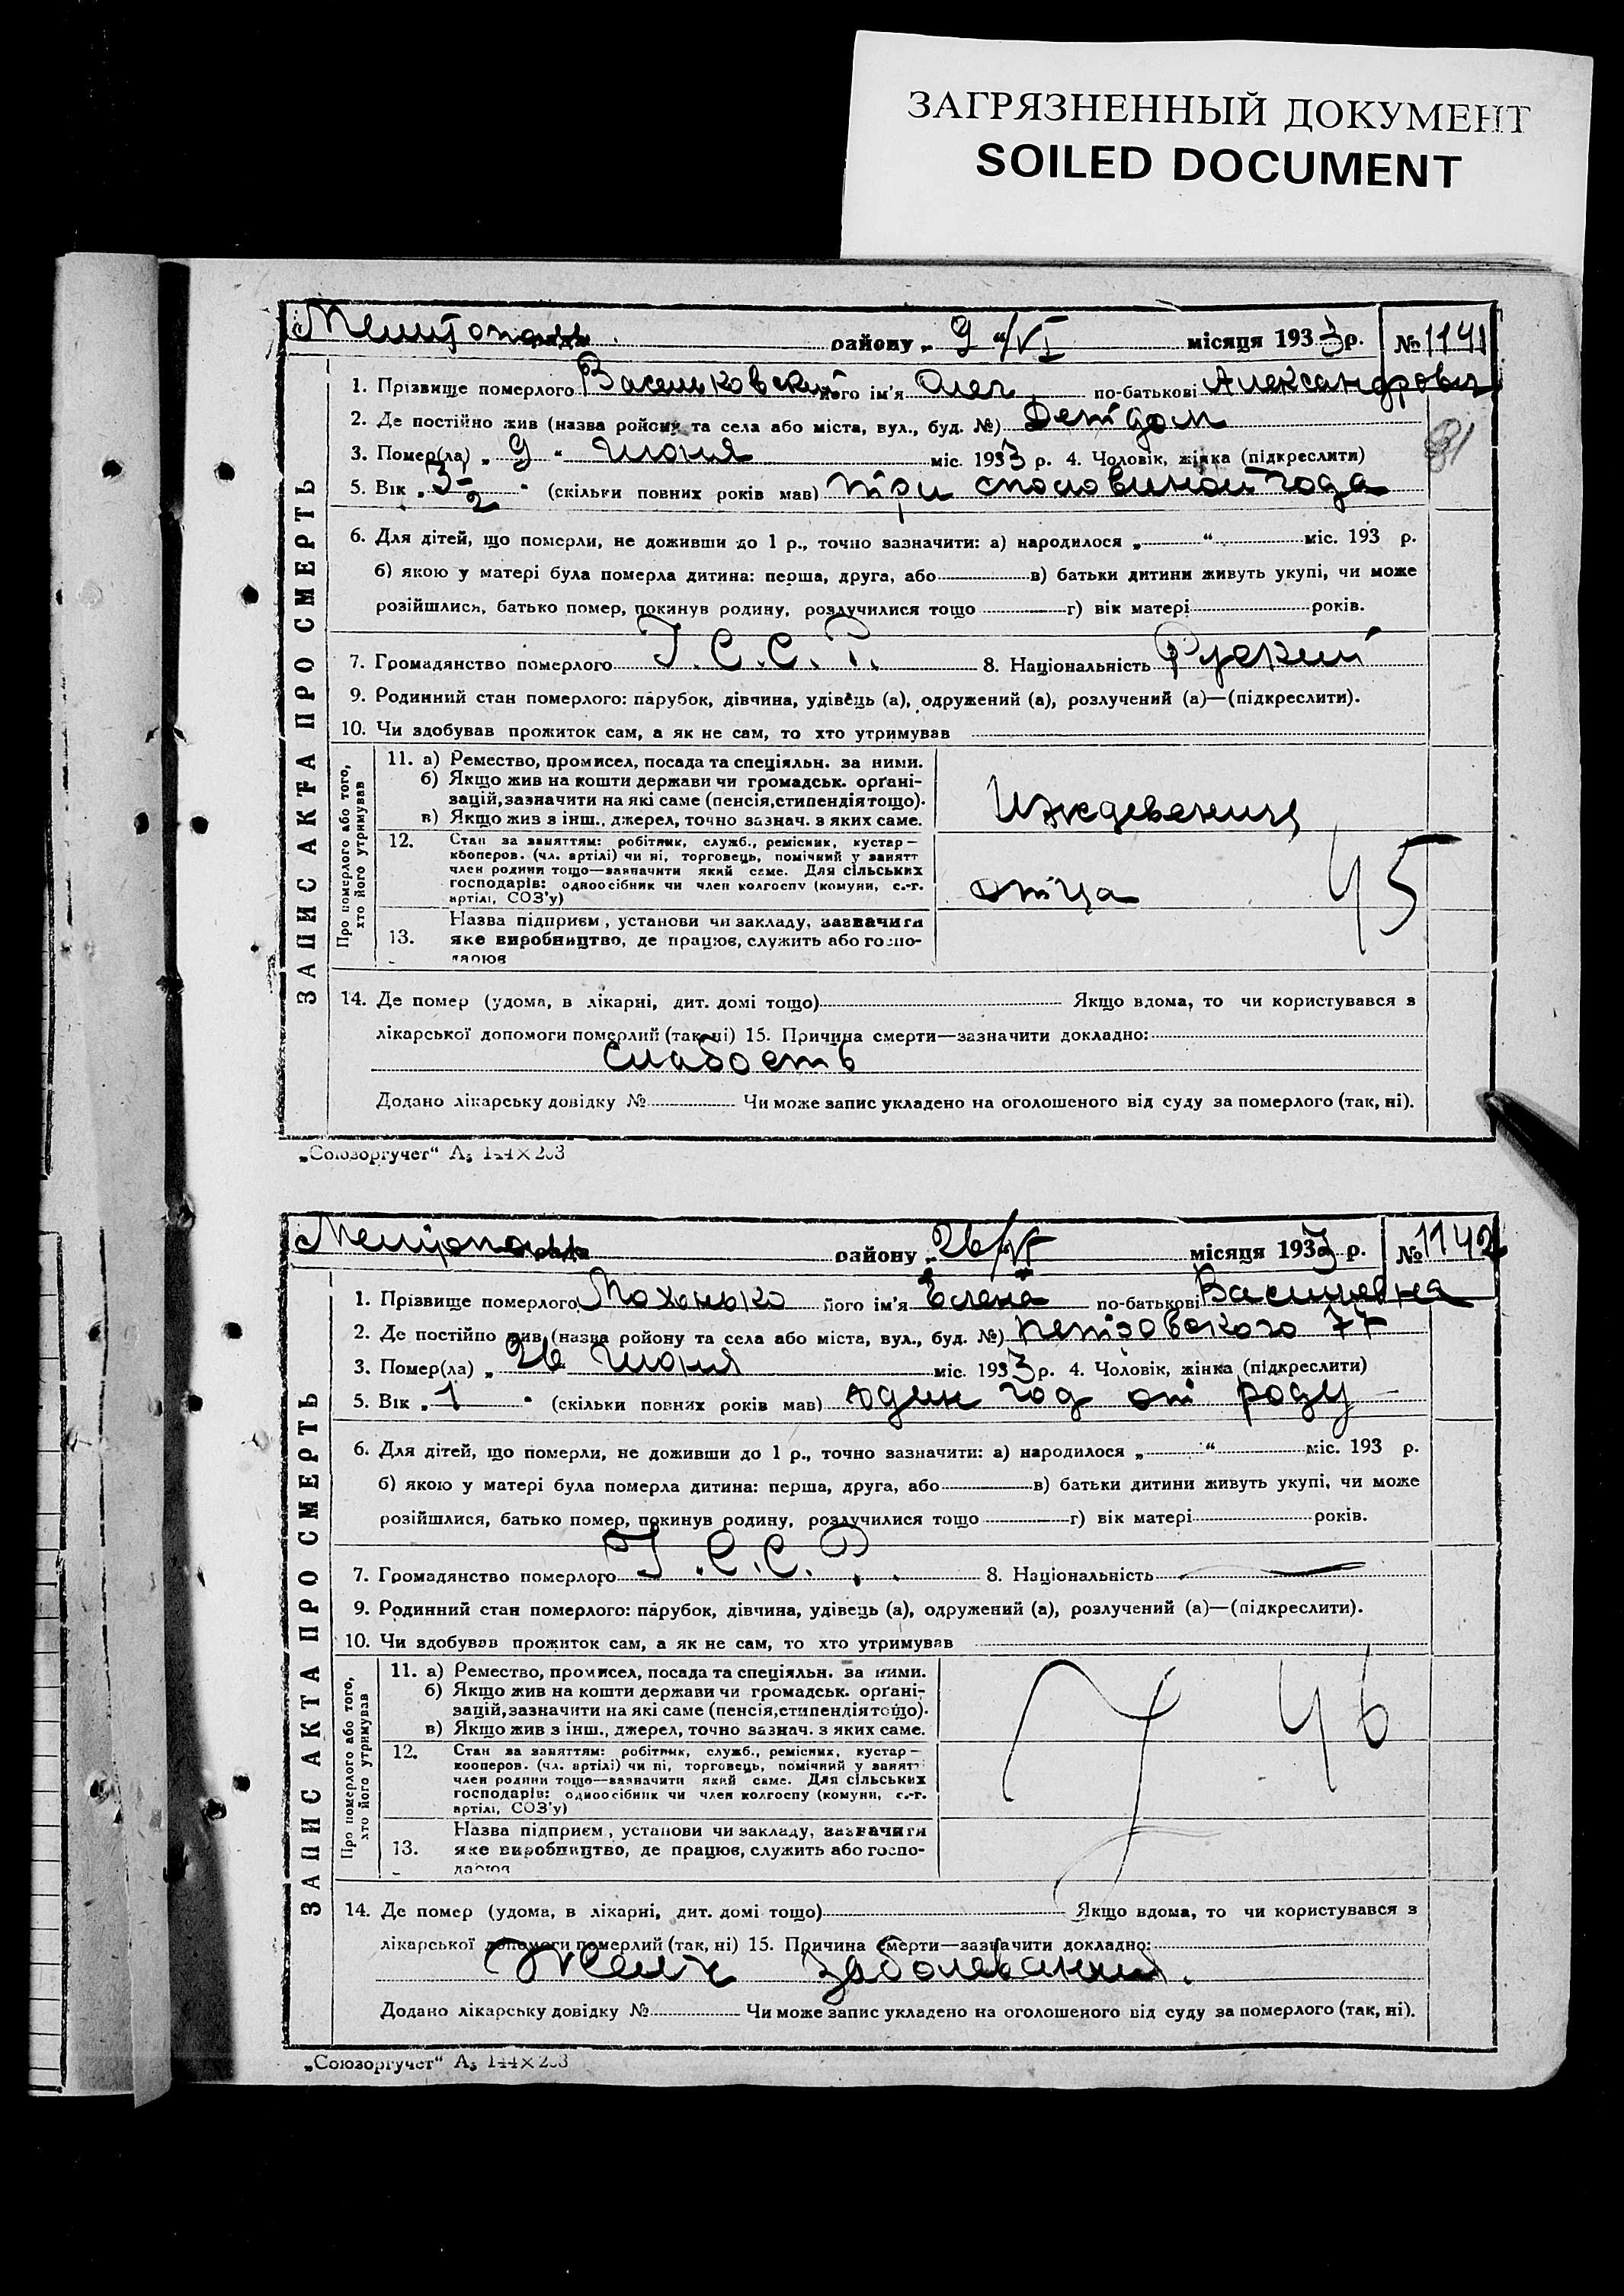 ЗАГРЯЗНЕННЫЙ ДОКУМЕНТ
SOILED DOCUMENT
ЗАПИС АКТА ПРО СМЕРТЬ
Мелитополь району „ 9 “/VI місяця 1933 р. № 1141
1. Прізвище померлого Васильковский його ім'я Олег по-батькові Александрович
2. Де постійно жив (назва району та села або міста, вул., буд. №) Детдом
81
3. Помер(ла) „ 9 “ Июня міс. 1933 р. 4. Чоловік, жінка (підкреслити)
5. Вік „ 3-2 “ (скільки повних років мав) три споловиной года
6. Для дітей, що померли, не доживши до 1 р., точно зазначити: а) народилося „ “ міс. 193 р.
б) якою у матері була померла дитина: перша, друга, або в) батьки дитини живуть укупі, чи може
розійшлися, батько помер, покинув родину, розлучилися тощо г) вік матері років.
7. Громадянство померлого У.С.С.Р. 8. Національність Руский
9. Родинний стан померлого: парубок, дівчина, удівець (а), одружений (а), розлучений (а)—(підкреслити).
10. Чи здобував прожиток сам, а як не сам, то хто утримував
Про померлого або того,
хто його утримував
11. а) Ремество, промисел, посада та спеціяльн. за ними.
б) Якщо жив на кошти держави чи громадськ. орґані-
зацій, зазначити на які саме (пенсія, стипендія тощо).
в) Якщо жив з інш., джерел, точно зазнач. з яких саме.
Иждевениц
12. Стан за заняттям: робітник, служб., ремісник, кустар—
кооперов. (чл. артілі) чи ні, торговець, помічний у занятт
член родини тощо—зазначити який саме. Для сільських
господарів: одноосібник чи член колгоспу (комуни, с.-г.
артілі, СОЗ'у)
отца 45
Назва підприєм, установи чи закладу, зазначити
13. яке виробництво, де працює, служить або госпо-
дарює
14. Де помер (удома, в лікарні, дит. домі тощо) Якщо вдома, то чи користувався з
лікарської допомоги померлий (так, ні) 15. Причина смерти—зазначити докладно:
слабость
Додано лікарську довідку № Чи може запис укладено на оголошеного від суду за померлого (так, ні).
„Союзоргучет“ А5 144×203
ЗАПИС АКТА ПРО СМЕРТЬ
Мелитополь району „ 26/VI місяця 1933 р. № 1142
1. Прізвище померлого Махонько його ім'я Елена по-батькові Василевна
2. Де постійно жив (назва району та села або міста, вул., буд. №) 77
3. Помер(ла) „ 26 Июня міс. 1933 р. 4. Чоловік, жінка (підкреслити)
5. Вік „ 1 “ (скільки повних років мав) один год от роду
6. Для дітей, що померли, не доживши до 1 р., точно зазначити: а) народилося „ “ міс. 193 р.
б) якою у матері була померла дитина: перша, друга, або в) батьки дитини живуть укупі, чи може
розійшлися, батько помер, покинув родину, розлучилися тощо г) вік матері років.
7. Громадянство померлого У.С.С.Р. 8. Національність —
9. Родинний стан померлого: парубок, дівчина, удівець (а), одружений (а), розлучений (а)—(підкреслити).
10. Чи здобував прожиток сам, а як не сам, то хто утримував
Про померлого або того,
хто його утримував
11. а) Ремество, промисел, посада та спеціяльн. за ними.
б) Якщо жив на кошти держави чи громадськ. орґані-
зацій, зазначити на які саме (пенсія, стипендія тощо).
в) Якщо жив з інш., джерел, точно зазнач. з яких саме.
46
12. Стан за заняттям: робітник, служб., ремісник, кустар—
кооперов. (чл. артілі) чи ні, торговець, помічний у занятт
член родини тощо—зазначити який саме. Для сільських
господарів: одноосібник чи член колгоспу (комуни, с.-г.
артілі, СОЗ'у)
Назва підприєм, установи чи закладу, зазначити
13. яке виробництво, де працює, служить або госпо-
дарює
14. Де помер (удома, в лікарні, дит. домі тощо) Якщо вдома, то чи користувався з
лікарської допомоги померлий (так, ні) 15. Причина смерти—зазначити докладно:
заболевания.
Додано лікарську довідку № Чи може запис укладено на оголошеного від суду за померлого (так, ні).
„Союзоргучет“ А5 144×203